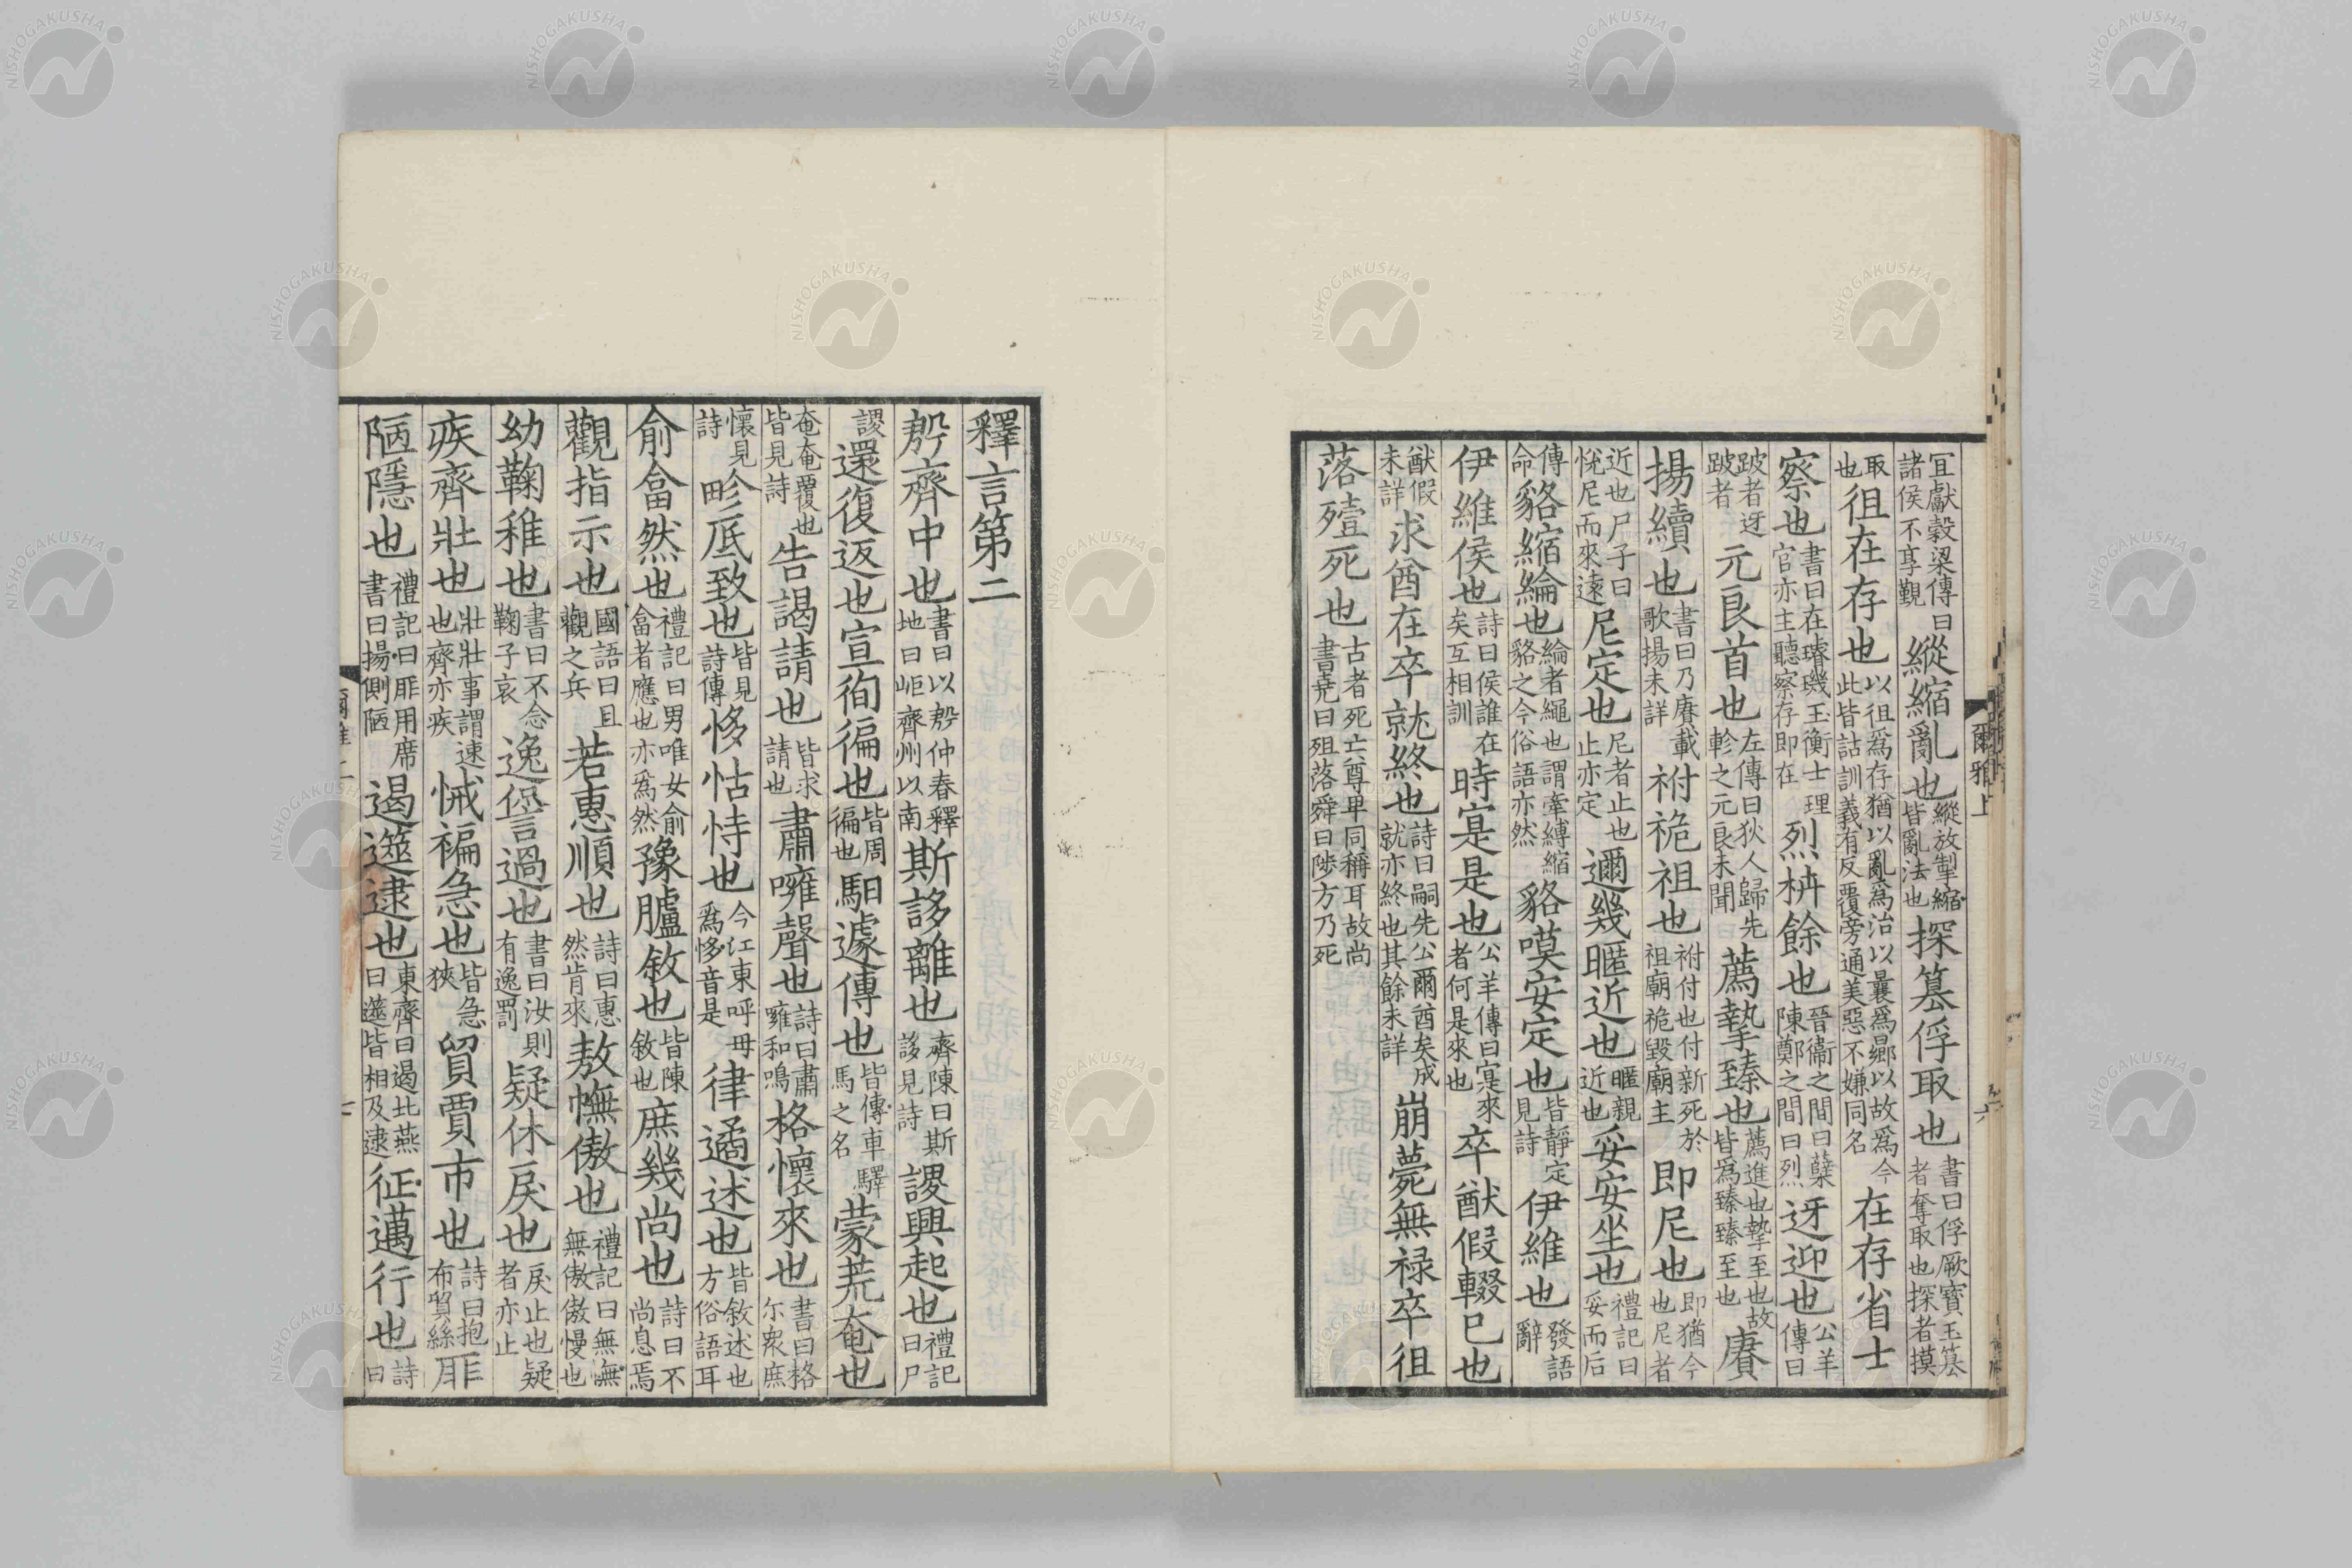 宜獻穀梁傳曰諸侯不享覲縱縮亂也縱放掣縮皆亂法也探篡俘取也書曰俘厥寶玉篡者奪取也探者摸
取也徂在存也以徂爲存猶以亂爲治以曩爲曏以故爲今此皆詁訓義有反覆旁通美惡不嫌同名在存省士
察也書曰在璿璣玉衡士理官亦主聽察存即在烈枿餘也晉衞之間曰蘖陳鄭之間曰烈迓迎也公羊傳曰
跛者迓跛者元良首也左傳曰狄人歸先軫之元良未聞薦摯臻也薦進也摯至也故皆爲臻臻至也賡
揚續也書曰乃賡載歌揚未詳祔祪祖也祔付也付新死於祖廟祪毀廟主即尼也即猶今也尼者
近也尸子曰悅尼而來遠尼定也尼者止也止亦定邇幾暱近也暱親近也妥安坐也禮記曰妥而后
傳命貉縮綸也綸者繩也謂牽縛縮貉之今俗語亦然貉嗼安定也皆靜定見詩伊維也發語辭
伊維侯也詩曰侯誰在矣互相訓時寔是也公羊傳曰寔來者何是來也卒猷假輟已也
猷假未詳求酋在卒就終也詩曰嗣先公爾酋矣成就亦終也其餘未詳崩薨無禄卒徂
落殪死也古者死亡尊卑同稱耳故尚書堯曰殂落舜曰陟方乃死
爾雅上
釋言第二
殷齊中也書曰以殷仲春釋地曰岠齊州以南斯誃離也齊陳曰斯誃見詩謖興起也禮記曰尸
謖還復返也宣徇徧也皆周徧也馹遽傳也皆傳車驛馬之名蒙荒奄也
奄奄覆也皆見詩告謁請也皆求請也肅噰聲也詩曰肅雍和鳴格懷來也書曰格尔衆庶
懷見詩畛厎致也皆見詩傳恀怙恃也今江東呼母爲恀音是律遹述也皆敘述也方俗語耳
俞畣然也禮記曰男唯女俞畣者應也亦爲然豫臚敘也皆陳敘也庶幾尚也詩曰不尚息焉
觀指示也國語曰且觀之兵若惠順也詩曰惠然肯來敖憮傲也禮記曰無憮無傲傲慢也
幼鞠稚也書曰不念鞠子哀逸諐過也書曰汝則有逸罰疑休戾也戾止也疑者亦止
疾齊壯也壯壯事謂速也齊亦疾悈褊急也皆急狹貿賈市也詩曰抱布貿絲厞
陋隱也禮記曰厞用席書曰揚側陋遏遾逮也東齊曰遏北燕曰遾皆相及逮征邁行也詩曰
NISHOGAKUSHA